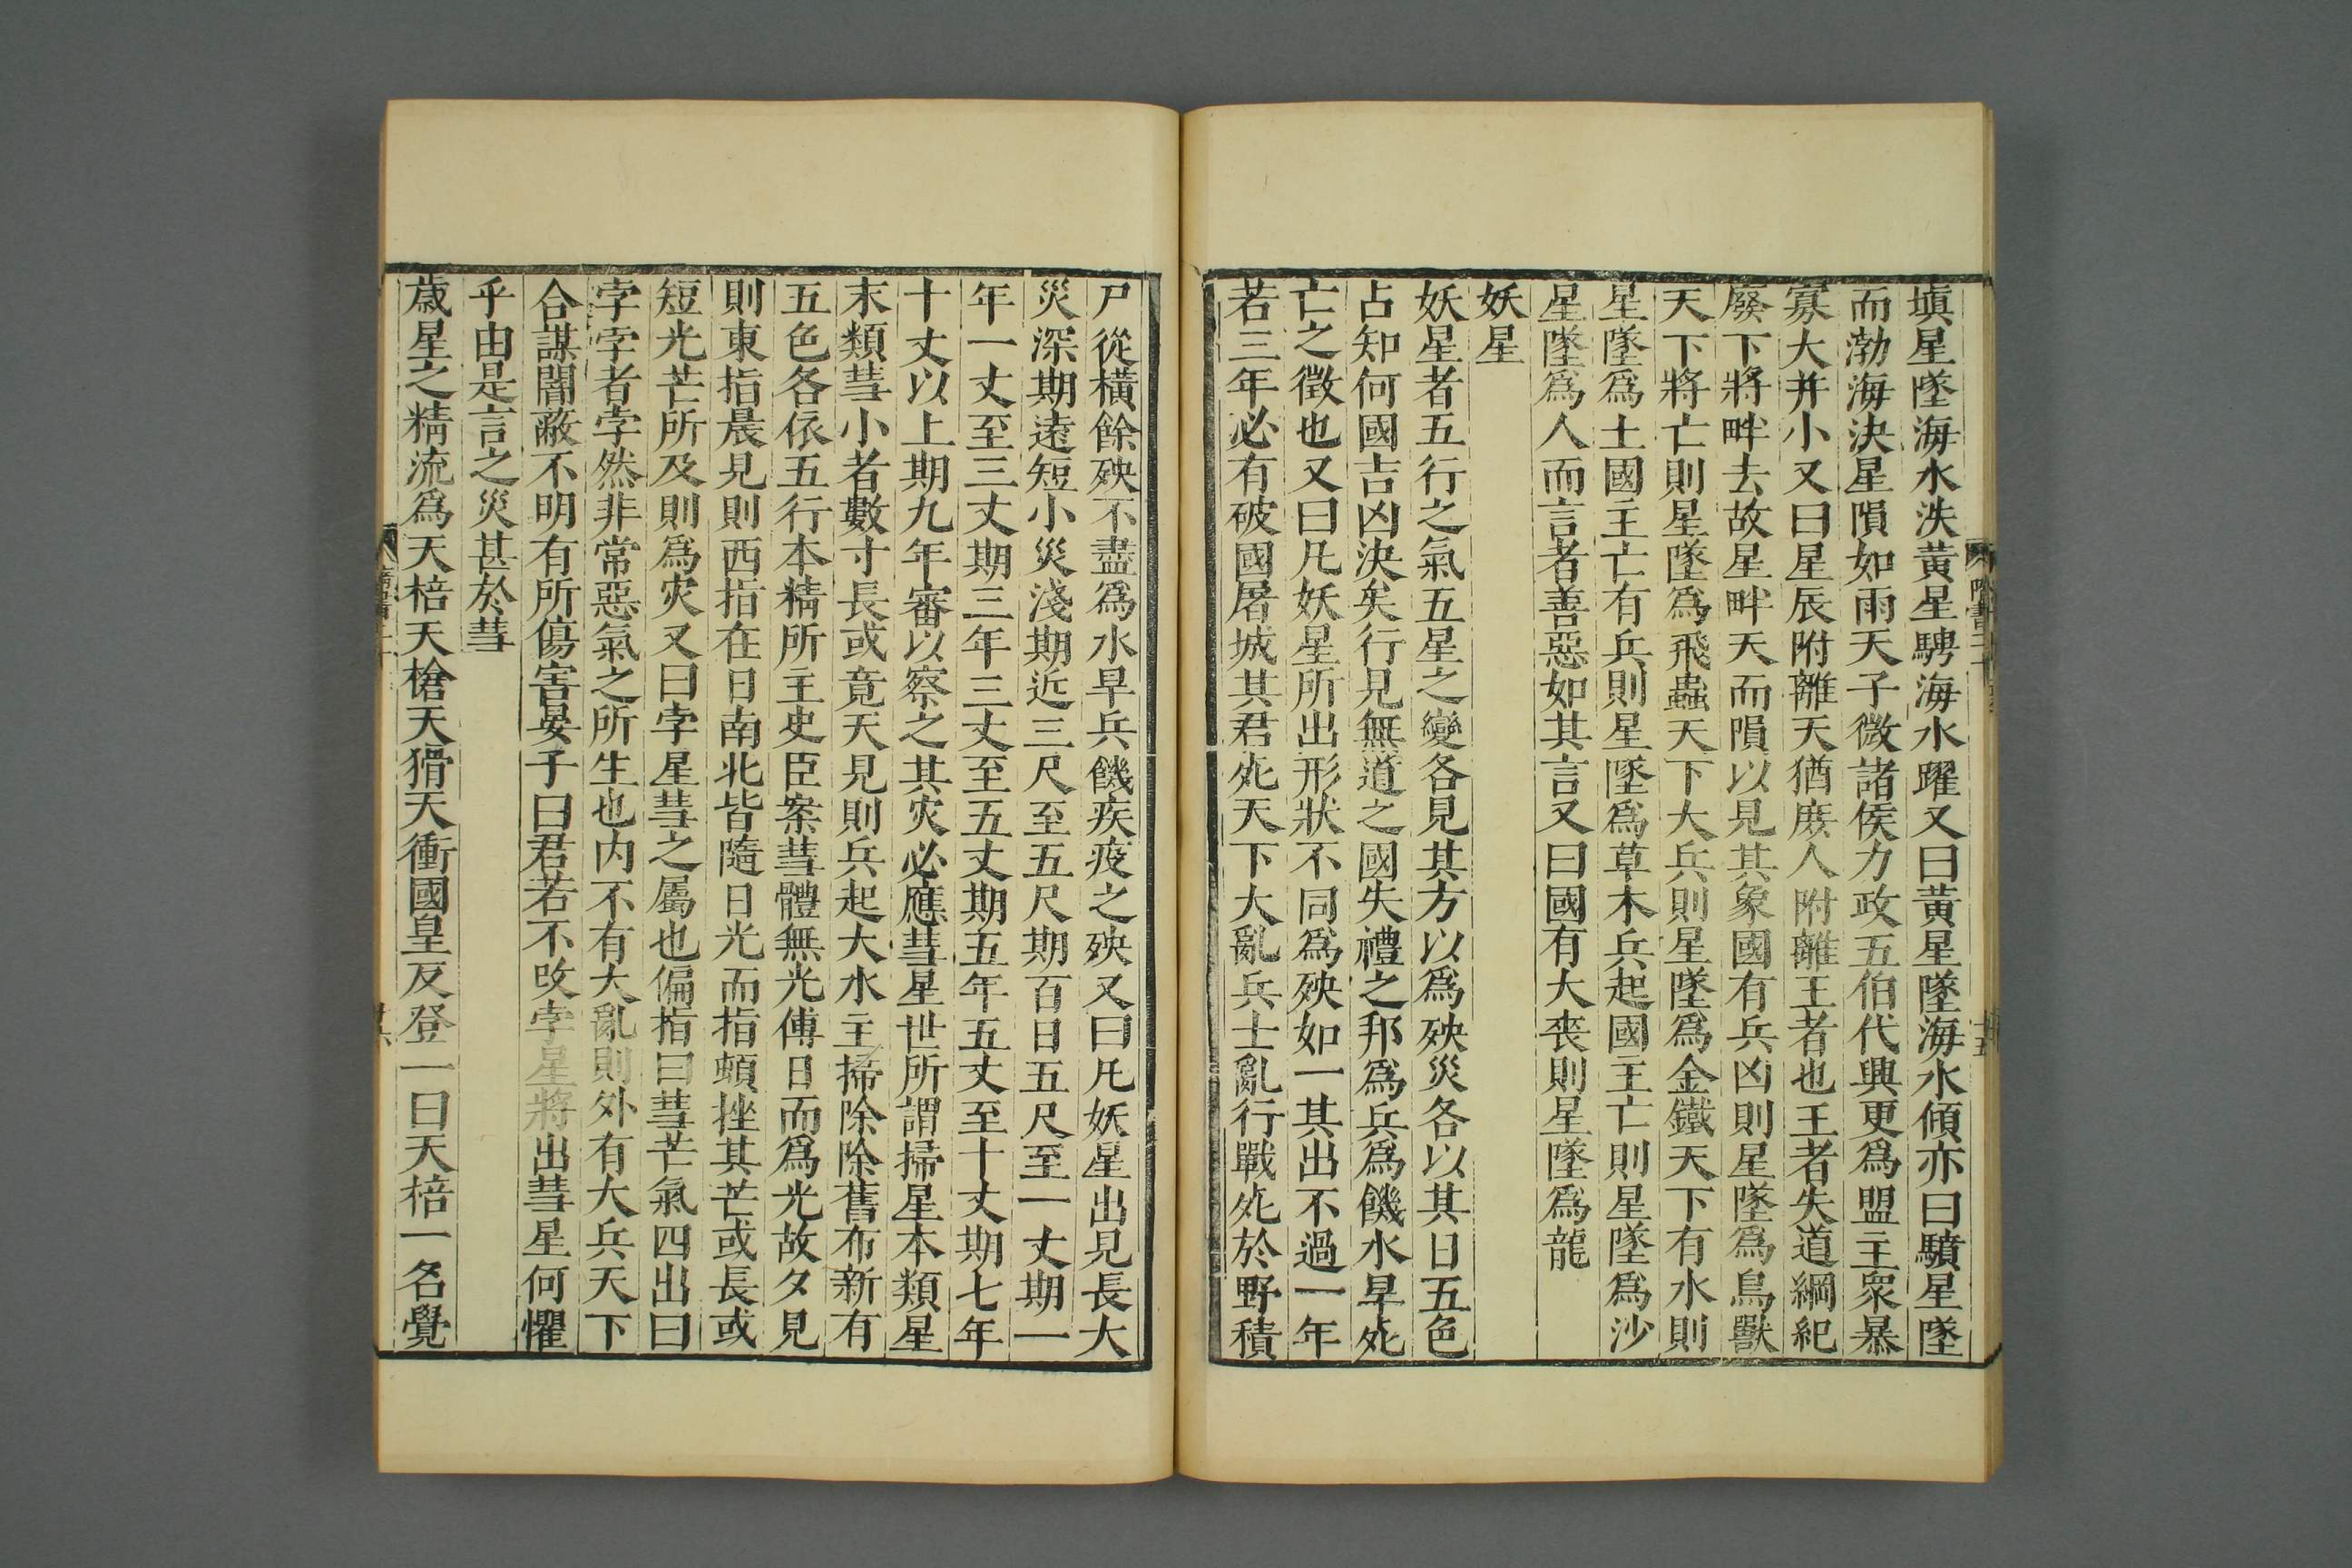 塡星墜海水泆黄星騁海水躍又曰黄星墜海水傾亦曰驞星墜
而渤海決星隕如雨天子微諸侯力政五伯代興更爲盟主衆暴
寡大并小又曰星辰附離天猶庻人附離王者也王者失道綱紀
廢下將畔去故星畔天而隕以見其象國有兵凶則星墜爲鳥獸
天下將亡則星墜爲飛蟲天下大兵則星墜爲金鐵天下有水則
星墜爲土國主亡有兵則星墜爲草木兵起國主亡則星墜爲沙
星墜爲人而言者善惡如其言又曰國有大喪則星墜爲龍
妖星
妖星者五行之氣五星之變各見其方以爲殃災各以其日五色
占知何國吉凶決矣行見無道之國失禮之邦爲兵爲饑水旱死
亡之徵也又曰凡妖星所出形狀不同爲殃如一其出不過一年
若三年必有破國屠城其君死天下大亂兵士亂行戰死於野積
尸從橫餘殃不盡爲水旱兵饑疾疫之殃又曰凡妖星出見長大
災深期遠短小災淺期近三尺至五尺期百日五尺至一丈期一
年一丈至三丈期三年三丈至五丈期五年五丈至十丈期七年
十丈以上期九年審以察之其灾必應彗星世所謂掃星本類星
末類彗小者數寸長或竟天見則兵起大水主掃除除舊布新有
五色各依五行本精所主史臣案彗體無光傅日而爲光故夕見
則東指晨見則西指在日南北皆隨日光而指頓挫其芒或長或
短光芒所及則爲灾又曰孛星彗之屬也偏指曰彗芒氣四出曰
孛孛者孛然非常惡氣之所生也内不有大亂則外有大兵天下
合謀闇蔽不明有所傷害晏子曰君若不改孛星將出彗星何懼
乎由是言之災甚於彗
歳星之精流爲天棓天槍天猾天衝國皇反登一曰天棓一名覺